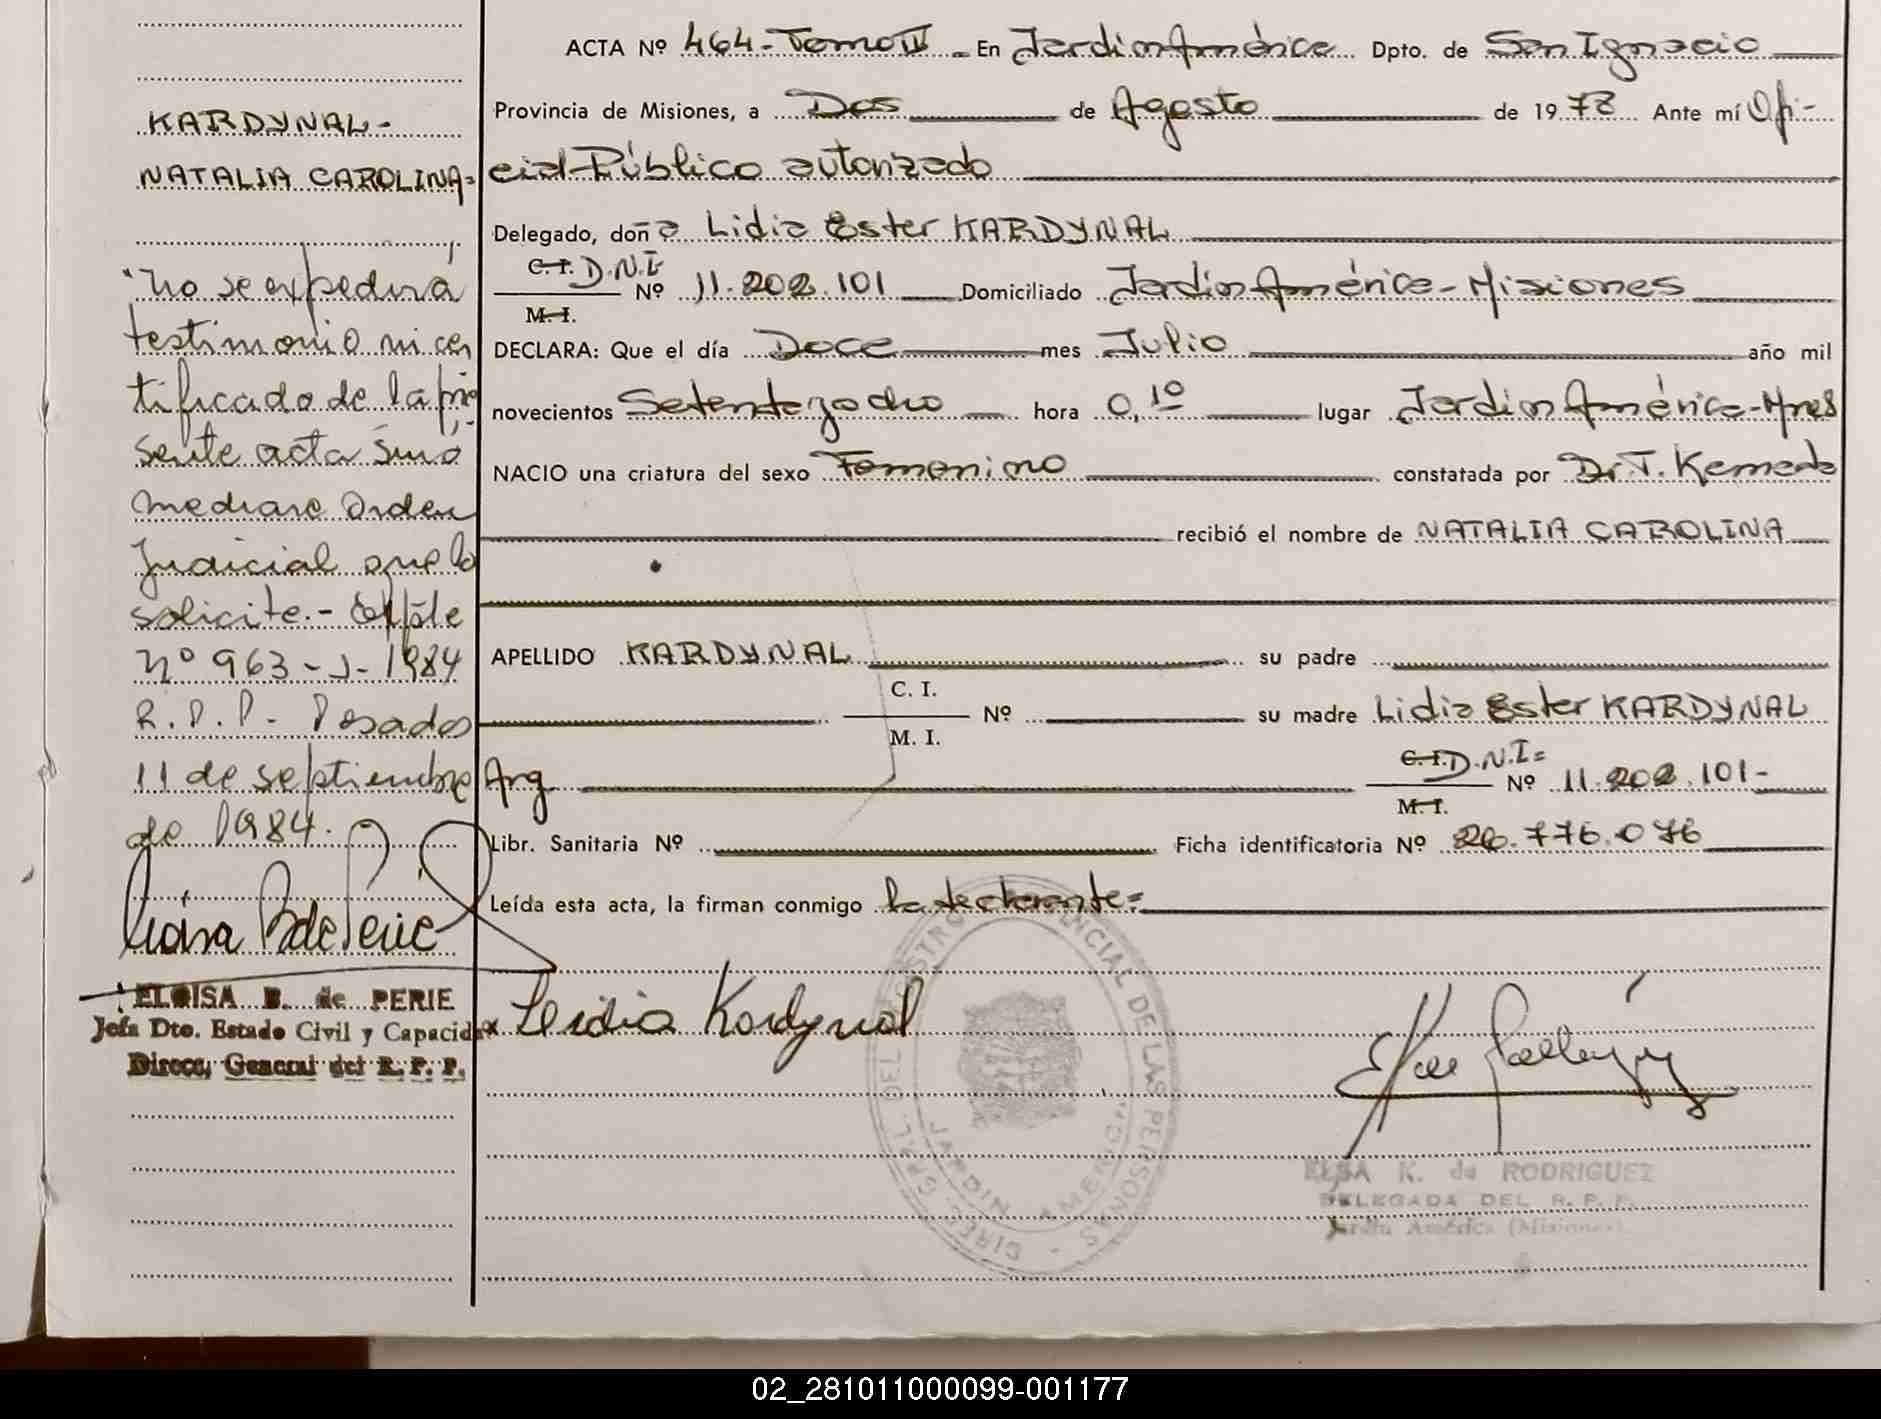 KARDYNAL-
NATALIA CAROLINA=
"No se expedirá
testimonio ni cer
tificado de la pre
sente acta sinó
mediare Orden
Judicial que lo
solicite.- Expte
Nº 963-J-1984
R.P.P. Posadas
11 de septiembre
de 1984.
ELOISA B. de PERIE
Jefa Dto. Estado Civil y Capacidad
Direcc. General del R. P. P.
ACTA Nº 464-Tomo IV - En Jardin América Dpto. de San Ignacio
Provincia de Misiones, a Dos de Agosto de 1978 Ante mí Ofi-
cial Público autorizado
Delegado, doña Lidia Ester KARDYNAL
C.I. D.N.I.
M.I. Nº 11.202.101 Domiciliado Jardin América-Misiones
DECLARA: Que el día Doce mes Julio año mil
novecientos Setentayocho hora 0,10 lugar Jardin América-Mnes
NACIO una criatura del sexo Femenino constatada por Dr. T. Kameda
recibió el nombre de NATALIA CAROLINA
APELLIDO KARDYNAL su padre
C. I.
M. I. Nº su madre Lidia Ester KARDYNAL
Arg C.I. D.N.I=
M.I. Nº 11.202.101-
Libr. Sanitaria Nº Ficha identificatoria Nº 26.776.076
Leída esta acta, la firman conmigo la declarante=
Lidia Kardynal
DIREC. GRAL. DEL REGISTRO PROVINCIAL DE LAS PERSONAS
JARDIN AMERICA
ELSA K. de RODRIGUEZ
DELEGADA DEL R. P. P.
Jardín América (Misiones)
02_281011000099-001177